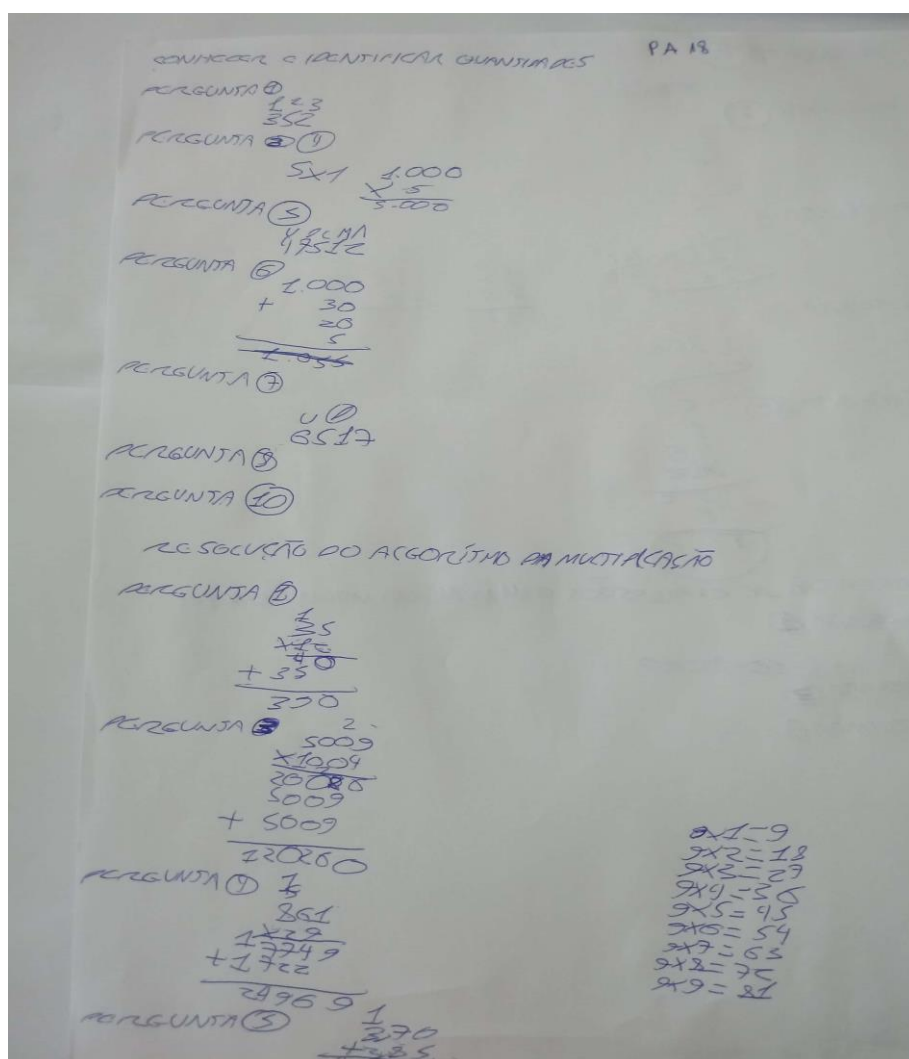 CONHECER E IDENTIFICAR QUANTIDADES
PA 18
PERGUNTA 1
1 2 3
352
PERGUNTA 4
5x1
1.000
x 5
5.000
PERGUNTA 5
47512
PERGUNTA 6
1.000
+ 30
20
5
1.055
PERGUNTA 7
6517
PERGUNTA
PERGUNTA 10
RESOLUÇÃO DO ALGORÍTMO DA MULTIPLCAÇÃO
PERGUNTA 1
1
35
+ 350
PERGUNTA
2
5009
x1004
5009
+ 5009
120260
PERGUNTA 4
1
861
x29
17749
+1722
24969
9x1=9
9x2=18
9x3=27
9x4=36
9x5=45
9x6=54
9x7=63
9x8=72
9x9=81
PERGUNTA 5
1
370
+335